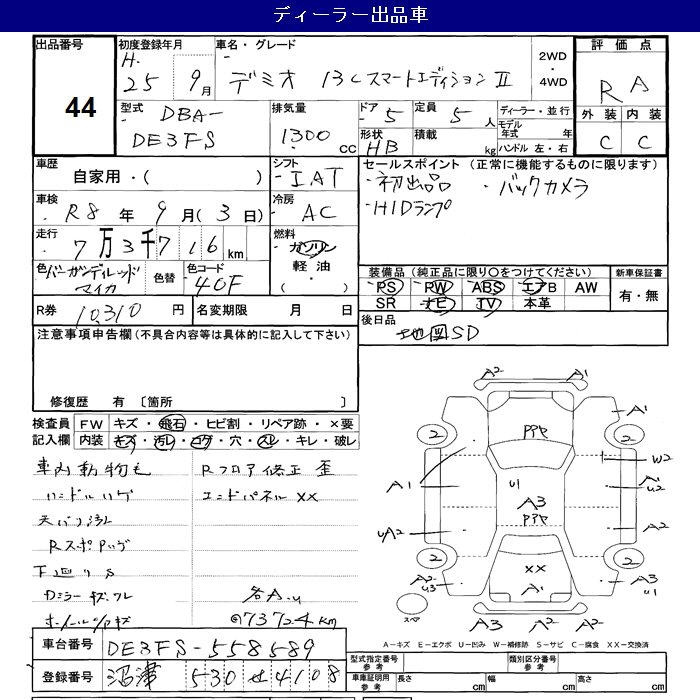 ディーラー出品車
出品番号
44
初度登録年月
H.
25 9月
車名・グレード
デミオ 13Cスマートエディション II
2WD
・
4WD
評価点
R A
外装 内装
C C
型式 DBA-
DE3FS
排気量
1300
cc
ドア 5
定員 5 人
形状 HB
積載 kg
ディーラー・並行
モデル年式 年
ハンドル 左・右
車歴
自家用・( )
シフト
IAT
車検
R8 年 9 月 ( 3 日)
冷房
AC
走行
7 万 3 千 7 1 6 km
燃料
ガソリン
軽油
( )
色 バーガンディレッド
マイカ
色替
色コード
40F
R券 10310 円
名変期限 月 日
セールスポイント (正常に機能するものに限ります)
・初出品 ・バックカメラ
・HIDランプ
装備品 (純正品に限り○をつけてください)
PS PW ABS エアB AW
SR ナビ TV 本革
新車保証書
有・無
後日品
地図SD
注意事項申告欄(不具合内容等は具体的に記入して下さい)
修復歴 有 〔箇所 〕
検査員 FW キズ・飛石・ヒビ割・リペア跡・×要
記入欄 内装 キズ・汚レ・コゲ・穴・スレ・キレ・破レ
車内動物毛 Rフロア修正 歪
ハンドルハゲ エンドパネル××
天バリ汚れ
下廻りS
Dミラーキズ
各A.u
@73724km
車台番号 DE3FS-558589
登録番号 沼津 530 せ 4108
A2 A1
A1
2 2
ドアヤ
W2
A1
u1
A3
A1
u2
uA2
ドアヤ
A2
2 2
××
A1
A2
u3
A3
u1
スペア
A3 A2 A2
A－キズ E－エクボ U－凹み W－補修跡 S－サビ C－腐食 XX－交換済
型式指定番号
参考
類別区分番号
参考
車庫証明用
参考
長さ cm 幅 cm 高さ cm